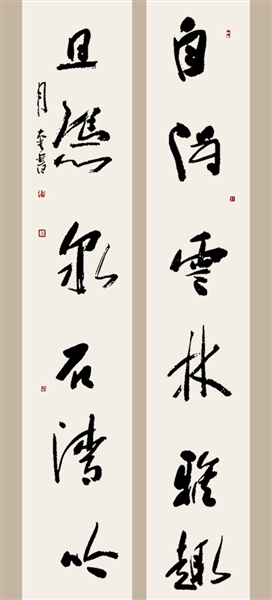 自得雲林雅趣
且憑泉石清吟